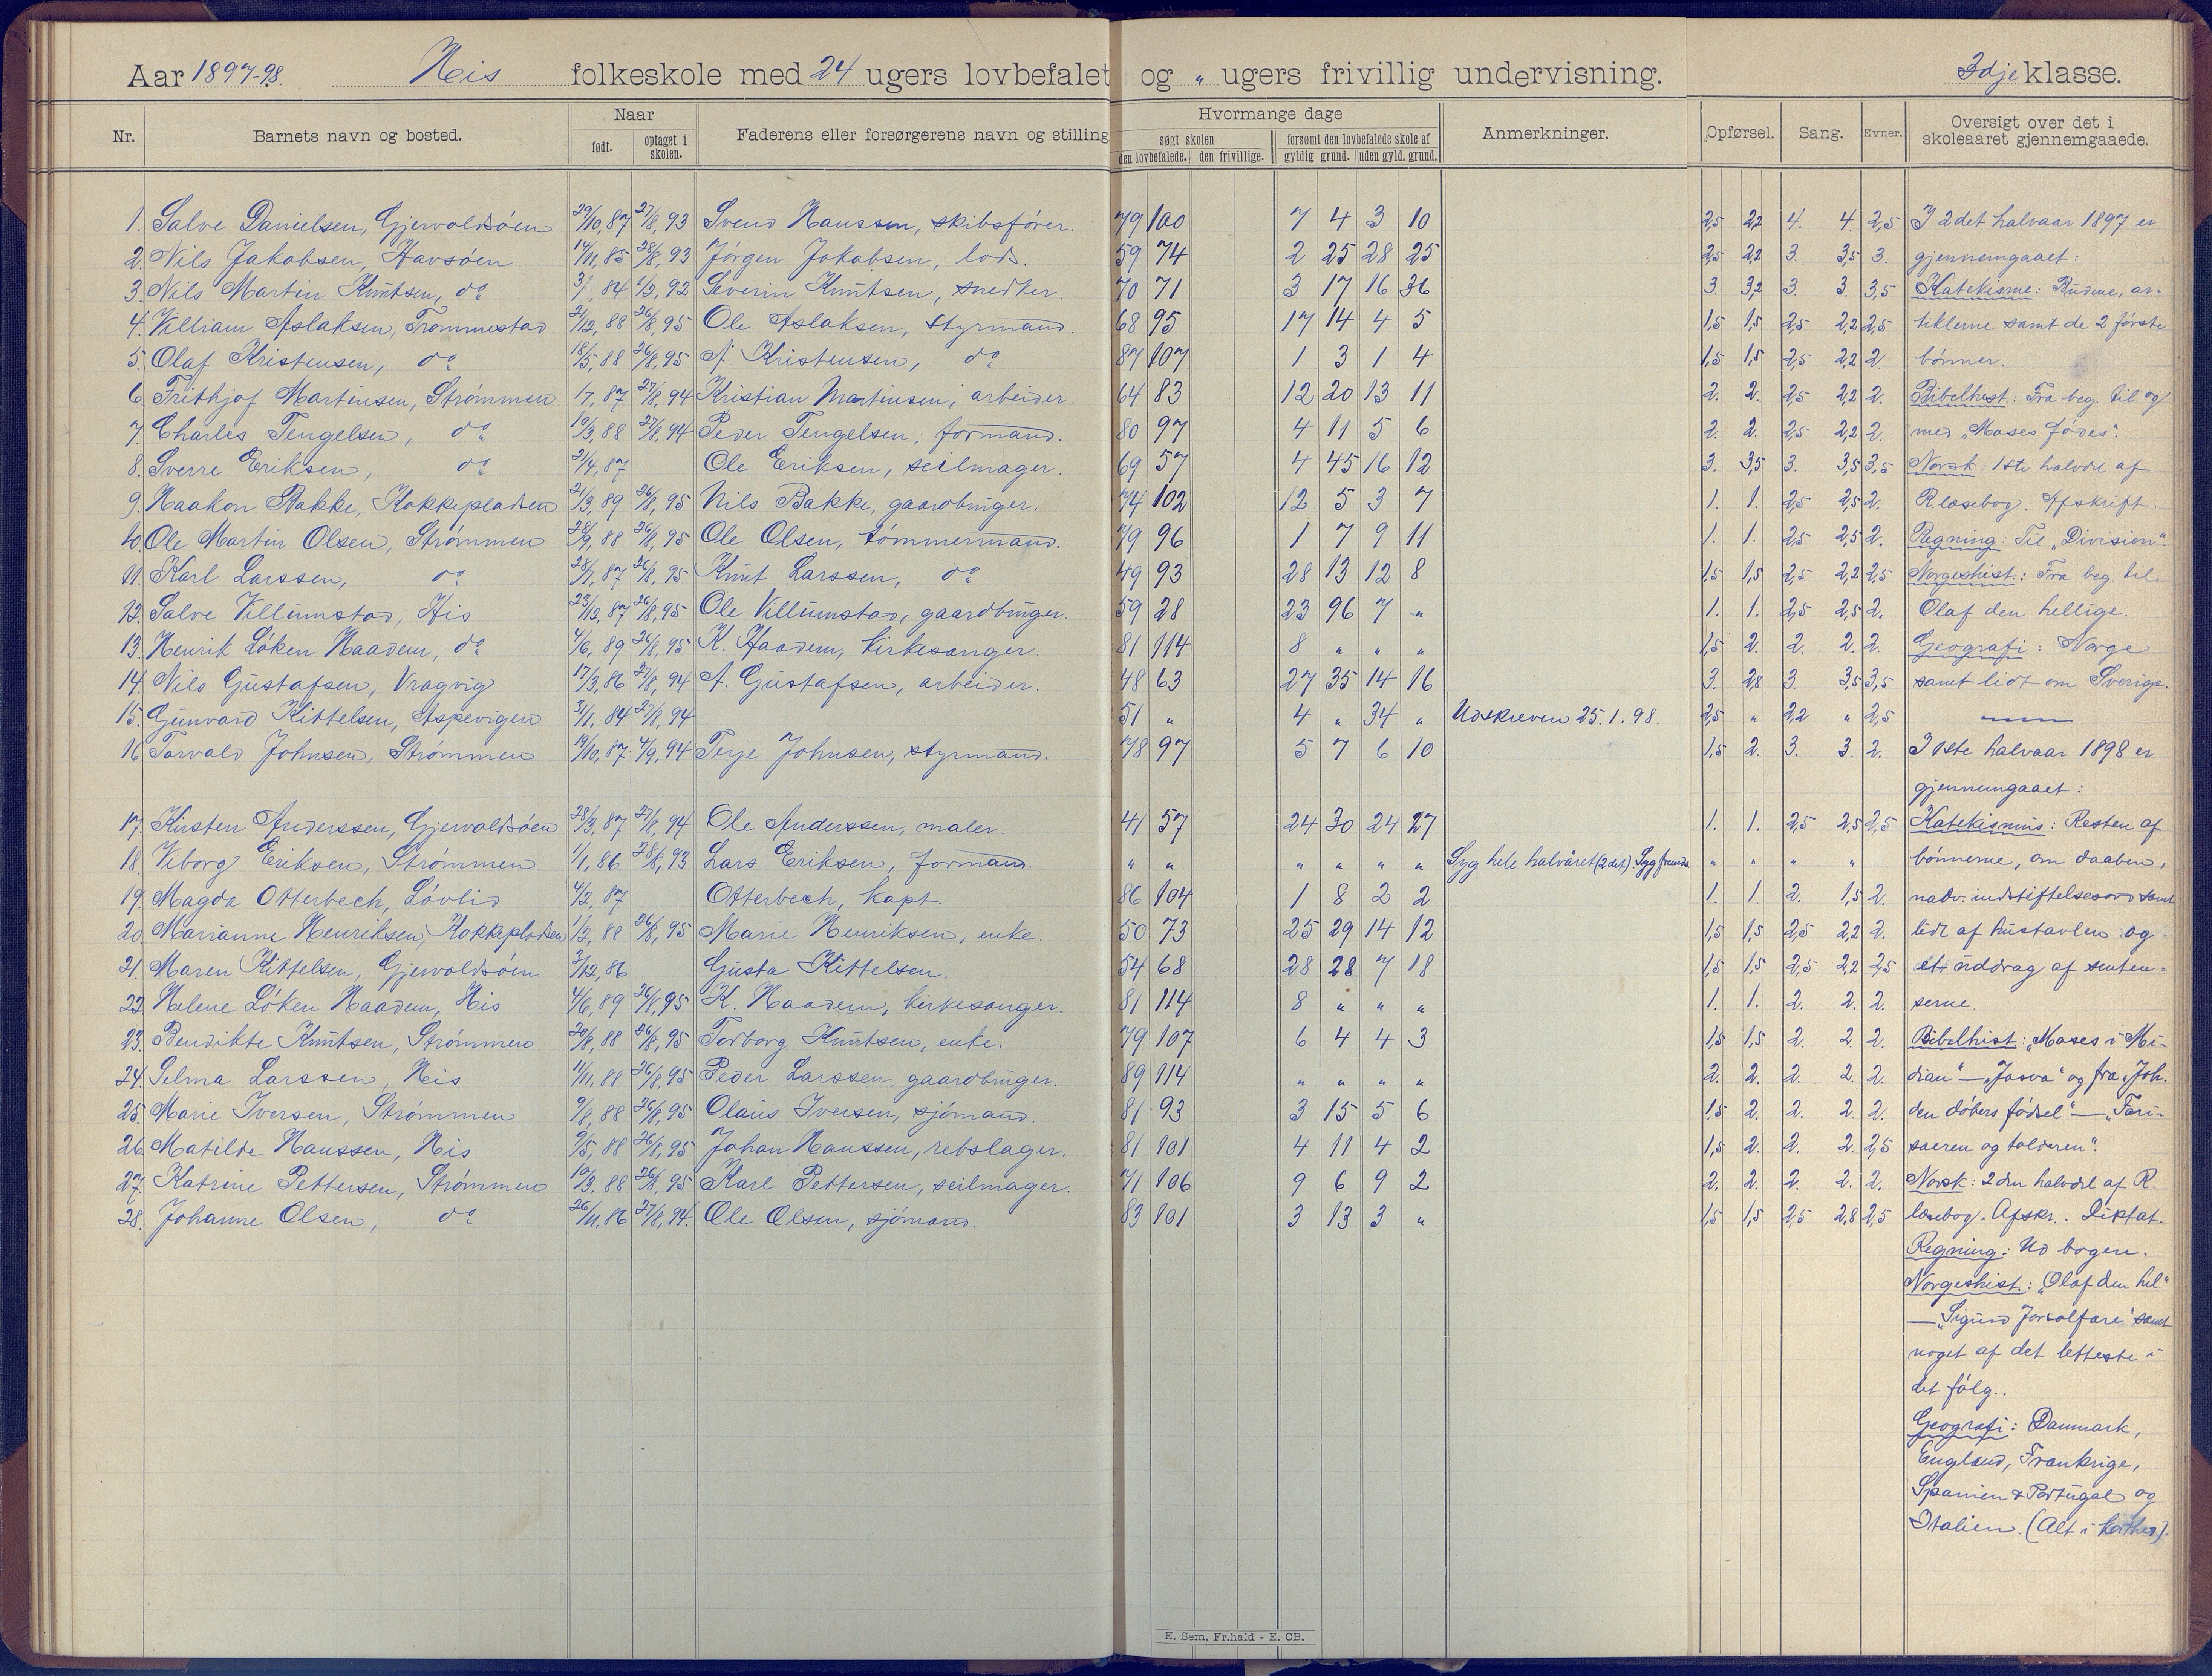 Aar 1897-98. His folkeskole med 24 ugers lovbefalet og „ ugers frivillig undervisning. 3dje klasse.
Nr. Barnets navn og bosted. Naar født. optaget i skolen. Faderens eller forsørgerens navn og stilling Hvormange dage søgt skolen den lovbefalede. den frivillige. forsømt den lovbefalede skole af gyldig grund. uden gyld. grund. Anmerkninger. Opførsel. Sang. Evner. Oversigt over det i skoleaaret gjennemgaaede.
1. Salve Danielsen, Gjervoldsöen 29/10, 87 27/8, 93 Svend Hanssen, skibsförer. 79 100 7 4 3 10 2,5 2,2 4. 4. 2,5 I 2det halvaar 1897 er
2. Nils Jakobsen, Havsöen 14/11, 85 28/8, 93 Jörgen Jakobsen, lods. 59 74 2 25 28 25 2,5 2,2 3. 3,5 3. gjennemgaaet:
3. Nils Martin Knutsen, do 84 1/2, 92 Severin Knutsen, snedker. 70 71 3 17 16 36 3. 3,2 3. 3. 3,5 Katekisme: Budene, ar-
4. Villiam Aslaksen, Trommestad 21/12, 88 26/8, 95 Ole Aslaksen, styrmand. 68 95 17 14 4 5 1,5 1,5 2,5 2,2 2,5 tiklerne samt de 2 förste
5. Olaf Kristensen, do 18/5, 88 26/8, 95 A. Kristensen, do 87 107 1 3 1 4 1,5 1,5 2,5 2,2 2. bönner.
6. Frithjof Martinsen, Strömmen 87 27/8, 94 Kristian Martinsen, arbeider. 64 83 12 20 13 11 2. 2. 2,5 2,2 2. Bibelhist.: Fra beg. til og
7. Charles Tengelsen, do 10/3, 88 27/8, 94 Peder Tengelsen, formand. 80 97 4 11 5 6 2. 2. 2,5 2,2 2. med „Moses födes".
8. Sverre Eriksen, do 21/4, 87 Ole Eriksen, seilmager. 69 57 4 45 16 12 3. 3,5 3. 3,5 3,5 Norsk: 1ste halvdel af
9. Haakon Bakke, Kokkepladsen 21/3, 89 26/8, 95 Nils Bakke, gaardbruger. 74 102 12 5 3 7 1. 1. 2,5 2,5 2. R. læsebog. Afskrift.
10. Ole Martin Olsen, Strömmen 28/9, 88 26/8, 95 Ole Olsen, tömmermand. 79 96 1 7 9 11 1. 1. 2,5 2,5 2. Regning: Til „Division".
11. Karl Larssen, do 87 26/8, 95 Knut Larssen, do 49 93 28 13 12 8 1,5 1,5 2,5 2,2 2,5 Norgeshist.: Fra beg. til
12. Salve Villumstad, His 23/12, 87 26/8, 95 Ole Villumstad, gaardbruger. 59 28 23 96 7 „ 1. 1. 2,5 2,5 2. Olaf den hellige.
13. Henrik Löken Haadem, do 4/6, 89 26/8, 95 K. Haadem, kirkesanger. 81 114 8 „ „ „ 1,5 2. 2. 2. 2. Geografi: Norge
14. Nils Gustafsen, Vragvig 17/3, 86 27/8, 94 A. Gustafsen, arbeider. 48 63 27 35 14 16 3. 2,8 3. 3,5 3,5 samt lidt om Sverige.
15. Gunvald Kittelsen, Aspevigen 31/1, 84 27/8, 94 51 „ 4 „ 34 „ Udskreven 25.1.98. 2,5 „ 2,2 „ 2,5
16. Torvald Johnsen, Strömmen 19/10, 87 4/9, 94 Terje Johnsen, styrmand. 78 97 5 7 6 10 1,5 2. 3. 3. 2. I 1ste halvaar 1898 er
gjennemgaaet:
17. Kirsten Anderssen, Gjervoldsöen 28/3, 87 27/8, 94 Ole Anderssen, maler. 41 57 24 30 24 27 1. 1. 2,5 2,5 2,5 Katekismus: Resten af
18. Viborg Eriksen, Strömmen 1/1, 86 28/8, 93 Lars Eriksen, formand. „ „ „ „ „ „ Syg hele halvåret (2det). Syg „ „ „ „ bönnerne, om daaben,
19. Magda Otterbech, Lövlid 4/2, 87 Otterbech, kapt. 86 104 1 8 2 2 1. 1. 2. 1,5 2. nadv. indstiftelsesord samt
20. Marianne Henriksen, Kokkepladsen 1/2, 88 26/8, 95 Marie Henriksen, enke. 50 73 25 29 14 12 1,5 1,5 2,5 2,2 2. lidt af hustavlen og
21. Maren Kittelsen, Gjervoldsöen 3/12, 86 Gusta Kittelsen. 54 68 28 28 7 18 1,5 1,5 2,5 2,2 2,5 et uddrag af senten-
22. Helene Löken Haadem, His 4/6, 89 26/8, 95 K. Haadem, kirkesanger. 81 114 8 „ „ „ 1. 1. 2. 2. 2. serne.
23. Bendikte Knutsen, Strömmen 20/8, 88 26/8, 95 Torborg Knutsen, enke. 79 107 6 4 4 3 1,5 1,5 2. 2. 2. Bibelhist.: „Moses i Mi-
24. Selma Larssen, His 11/11, 88 26/8, 95 Peder Larssen, gaardbruger. 89 114 „ „ „ „ 2. 2. 2. 2. 2. dian" — „Josva" og fra „Joh.
25. Marie Iversen, Strömmen 9/8, 88 26/8, 95 Olaus Iversen, sjömand. 81 93 3 15 5 6 1,5 2. 2. 2. 2. den döbers födsel" — „Fari-
26. Matilde Hanssen, His 9/5, 88 26/8, 95 Johan Hanssen, rebslager. 81 101 4 11 4 2 1,5 2. 2. 2. 2,5 sæeren og tolderen".
27. Katrine Pettersen, Strömmen 19/3, 88 26/8, 95 Karl Pettersen, seilmager. 71 106 9 6 9 2 2. 2. 2. 2. 2. Norsk: 2den halvdel af R.
28. Johanne Olsen, do 26/11, 86 27/8, 94. Ole Olsen, sjömand. 83 101 3 13 3 „ 1,5 1,5 2,5 2,8 2,5 læsebog. Afskr.. Diktat.
Regning: Ud bogen.
Norgeshist.: „Olaf den hel."
— „Sigurd Jorsalfare" samt
noget af det letteste i
det fölg..
Geografi: Danmark,
England, Frankrige,
Spanien & Portugal og
Italien. (Alt i korthed).
E. Sem, Fr.hald - E. CB.